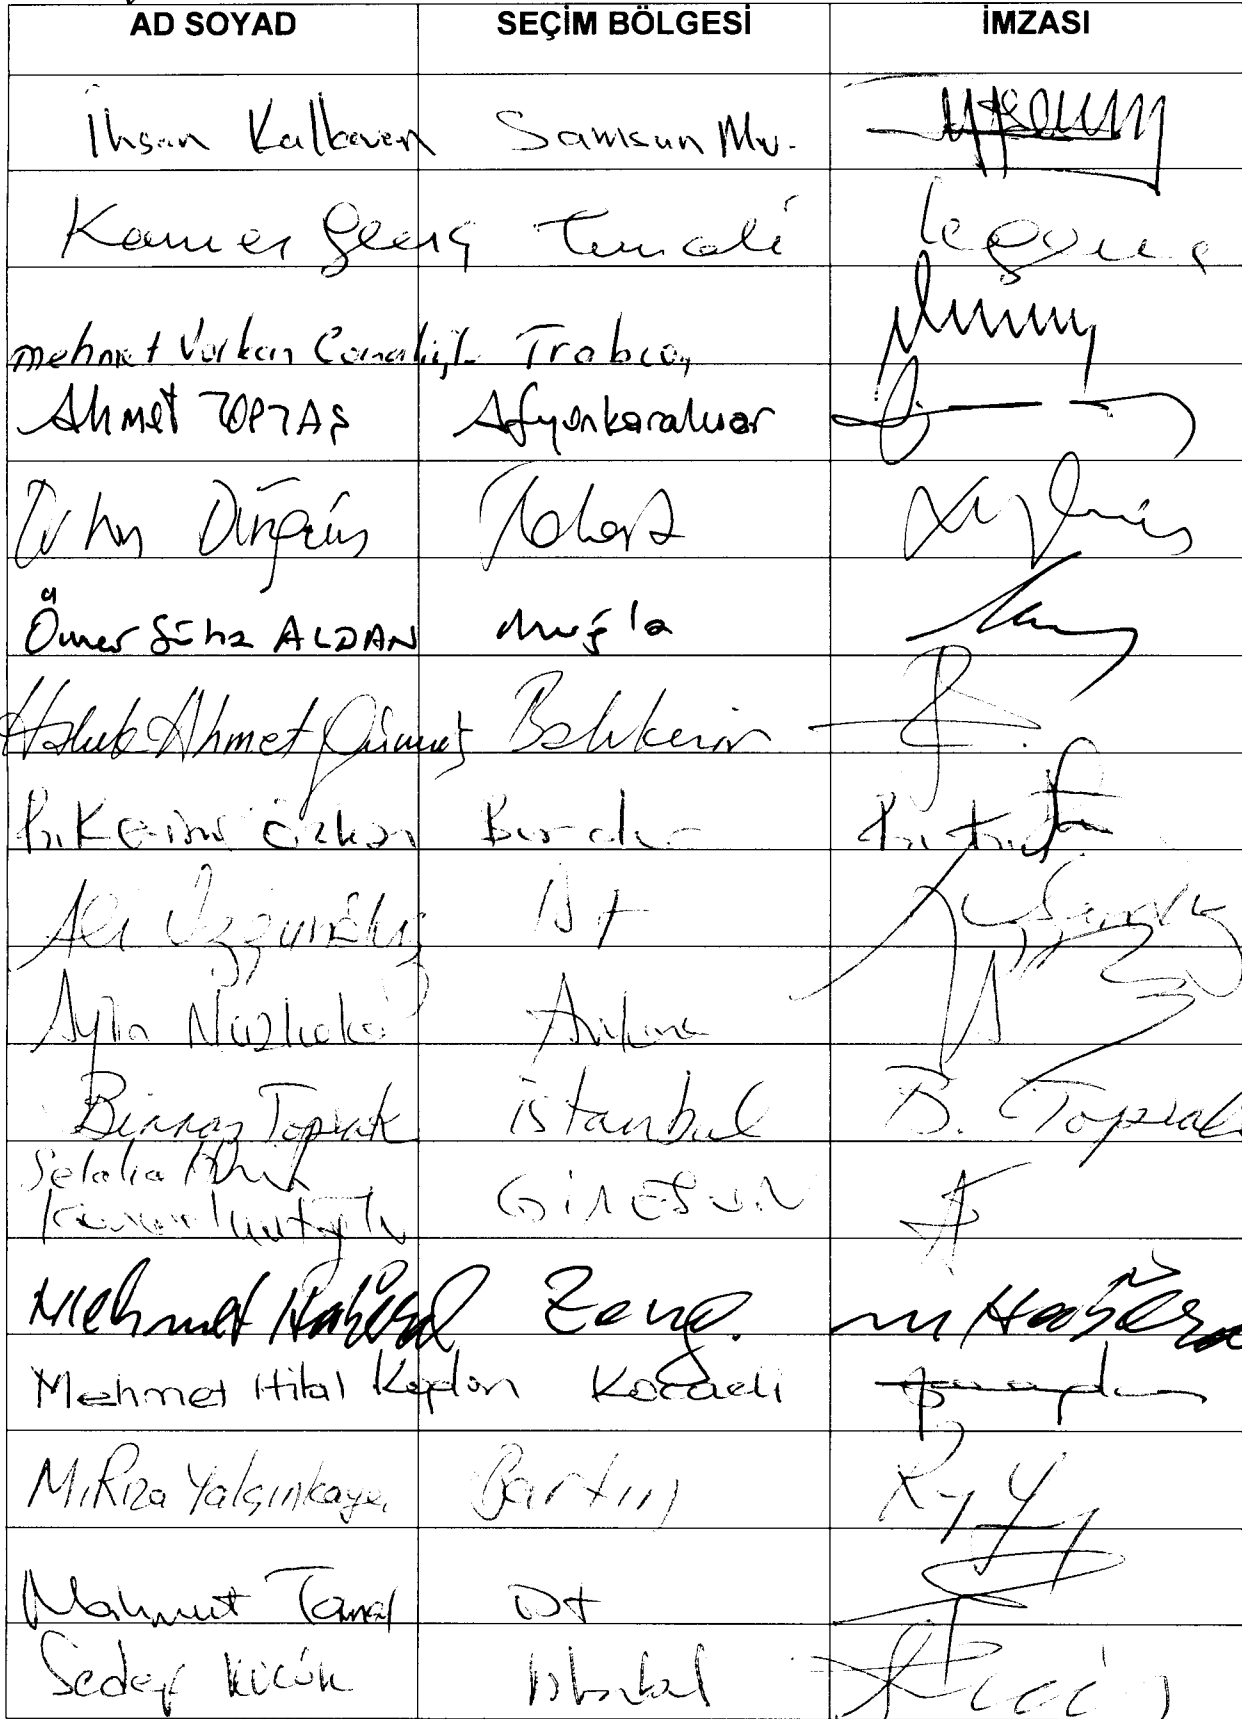 AD SOYAD SEÇİM BÖLGESİ İMZASI
İhsan Kalkavan Samsun Mv.
Kamer Genç Tunceli
Mehmet Volkan Canalioğlu Trabzon
Ahmet TOPTAŞ Afyonkarahisar
Orhan Düzgün Tokat
Ömer Süha ALDAN Muğla
Haluk Ahmet Gümüş Balıkesir
R. Kerim Özkan Burdur
Ali Özgündüz İst
Aylin Nazlıaka Ankara
Binnaz Toprak İstanbul B. Toprak
Selahattin
Karaahmetoğlu GİRESUN
Mehmet Haberal Zong. M Haberal
Mehmet Hilal Kaplan Kocaeli
M.Rıza Yalçınkaya Bartın
Mahmut Tanal İst
Sedef Küçük İstanbul